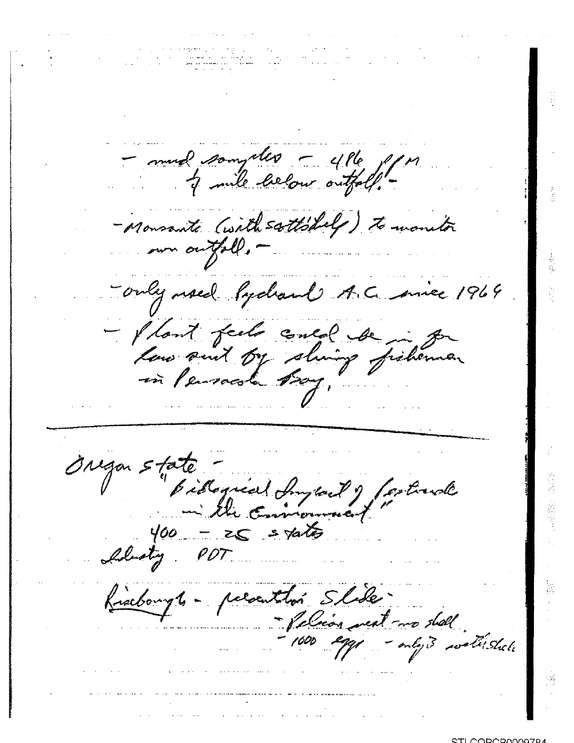 - mud samples - 486 PPM
¼ mile below outfall. -
- Monsanto (with Scott's help) to monitor
own outfall. -
- only used Pydraul A.C. since 1969
- Plant feels could be in for
law suit by shrimp fishermen
in Pensacola Bay.
Oregon State -
"Biological Impact of Pesticide
in the Environment"
400 - 25 states
Industry DDT
Risebough - presentation Slide -
- Pelican nest - no shell
- 1000 eggs - only 3 with shell
STLCOPCB0009784